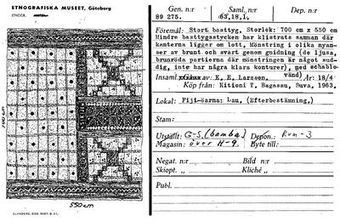 ETNOGRAFISKA MUSEET, Göteborg
Gen.n:r
Saml.n:r
Dep.n:r
89 275.
63,18,1.
Föremål: Stort basttyg, Storlek: 700 cm x 550 cm
Minsta basttygsstycken har klistrats samman där
kanterna ligger om lott. Mönstring i olika nyan-
ser av brunt och svart genom gnidning (de ljusa,
brunröda partierna där mönstringen är något sud-
dig, inte har några klara konturer), med schablo-
Insaml. K. E. Larsson,
År: 18/4
Köp från: Kitioni T, Bagasau, Suva, 1963,
Lokal: Fiji-öarna: Lau, (Efterbestämning,)
Stam:
Utställt: G-5. (bamba)
Depon.: Rum-3
Magasin: över H-9.
Byte till:
Negat. n:r
Bild n:r
Skiopt. n:r
Kliché n:r
Publ.
550 cm